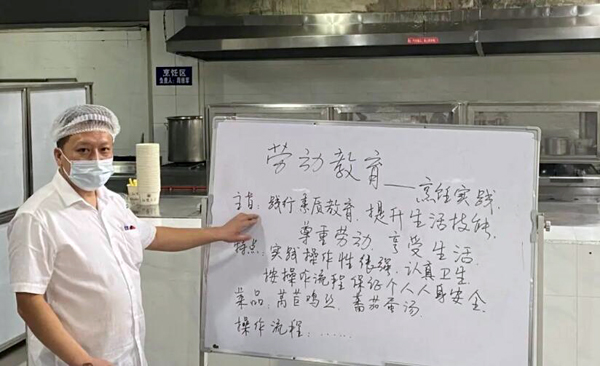 烹饪区
劳动教育——烹饪实践
主旨:践行素质教育,提升生活技能,
尊重劳动,享受生活
特点:实践操作性很强,认真卫生
按操作流程保证个人人身安全
菜品:莴苣鸡丝,番茄蛋汤.
操作流程:……